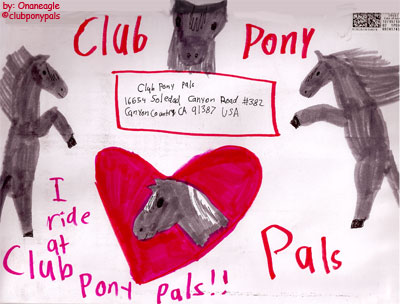 by: Onaneagle
©clubponypals
Club Pony
Club Pony Pals
16654 Soledad Canyon Road #382
Canyon Country CA 91387 USA
I
ride
at
Club
Pony Pals!!
Pals